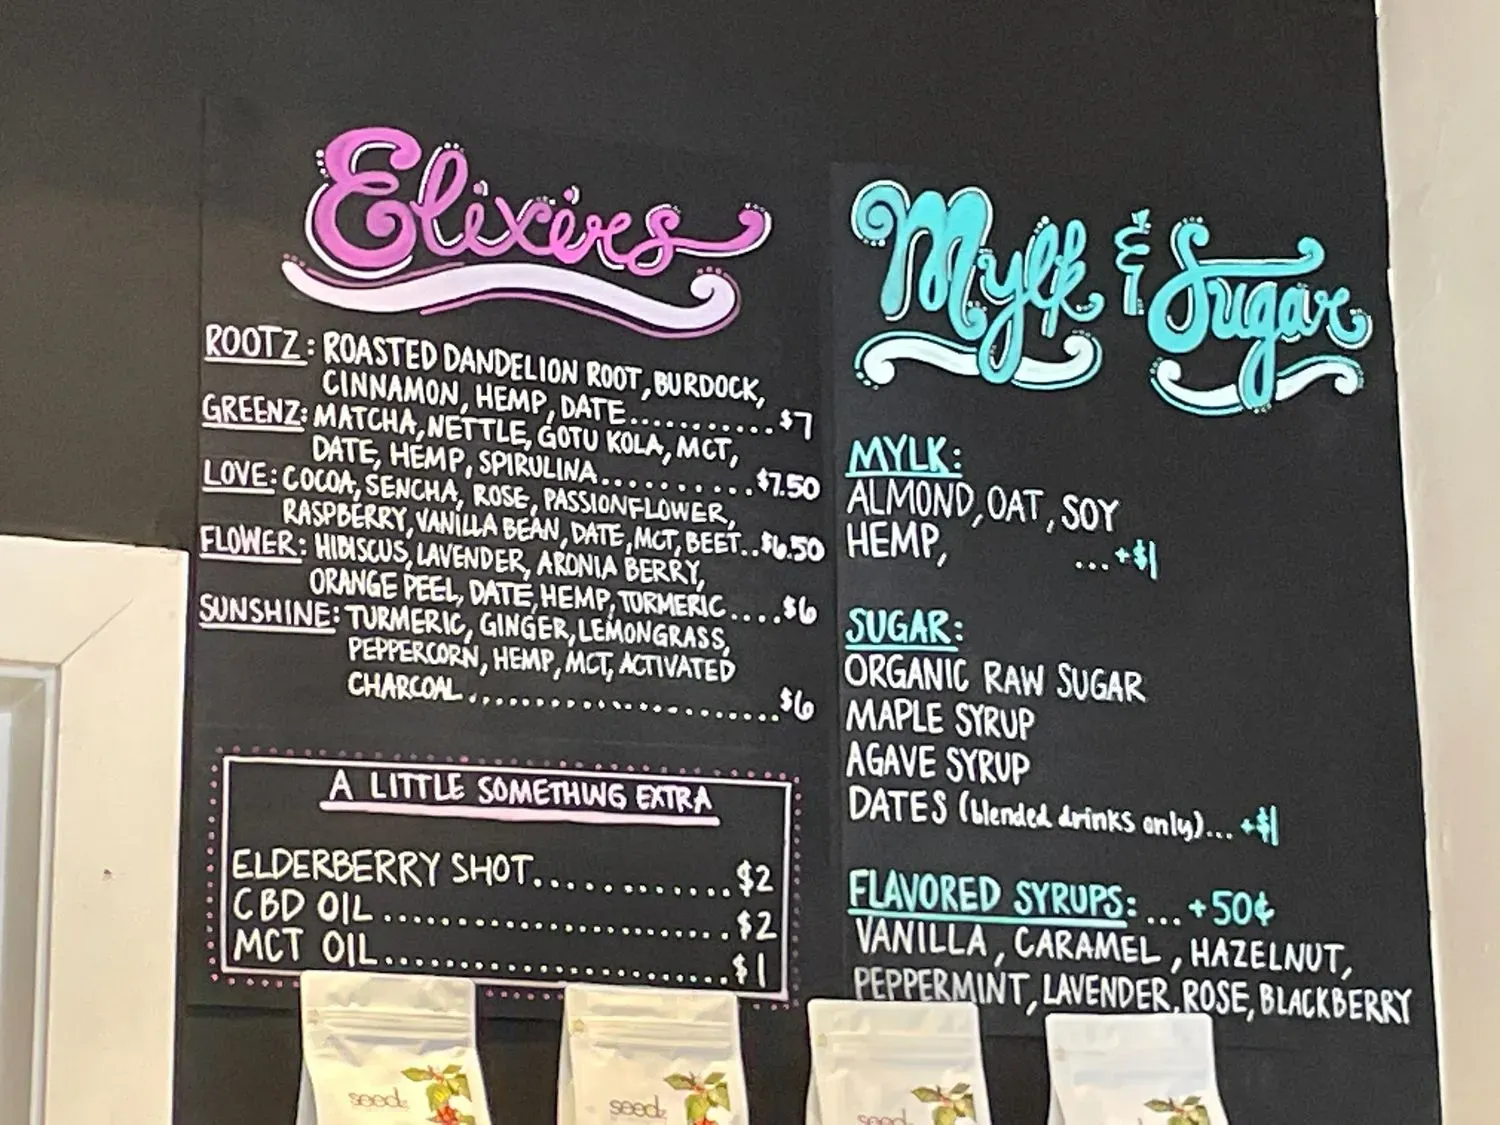 Elixirs
ROOTZ: ROASTED DANDELION ROOT, BURDOCK,
CINNAMON, HEMP, DATE........... $7
GREENZ: MATCHA, NETTLE, GOTU KOLA, MCT,
DATE, HEMP, SPIRULINA........... $7.50
LOVE: COCOA, SENCHA, ROSE, PASSIONFLOWER,
RASPBERRY, VANILLA BEAN, DATE, MCT, BEET..$6.50
FLOWER: HIBISCUS, LAVENDER, ARONIA BERRY,
ORANGE PEEL, DATE, HEMP, TURMERIC....$6
SUNSHINE: TURMERIC, GINGER, LEMONGRASS,
PEPPERCORN, HEMP, MCT, ACTIVATED
CHARCOAL......................$6
A LITTLE SOMETHING EXTRA
ELDERBERRY SHOT............$2
CBD OIL.......................$2
MCT OIL.......................$1
Mylk & Sugar
MYLK:
ALMOND, OAT, SOY
HEMP, ...+$1
SUGAR:
ORGANIC RAW SUGAR
MAPLE SYRUP
AGAVE SYRUP
DATES (blended drinks only)...+$1
FLAVORED SYRUPS: ...+50¢
VANILLA, CARAMEL, HAZELNUT,
PEPPERMINT, LAVENDER, ROSE, BLACKBERRY
seedz
seedz
seedz